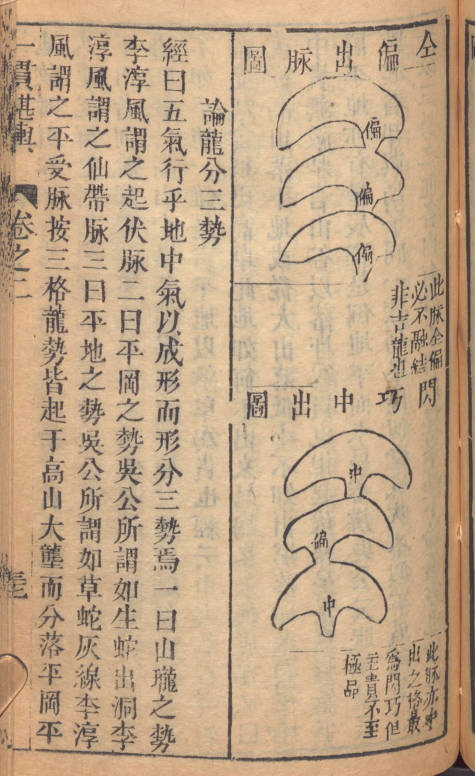 仝偏出脉圖
偏
偏
偏
此脉仝偏
必不融結
非吉龍也
閃
巧
中出圖
中
偏
中
此脉亦中
出之格最
為閃巧但
主貴不至
極品
論龍分三勢
經曰五氣行乎地中氣以成形而形分三勢焉一曰山壠之勢
李淳風謂之起伏脉二曰平岡之勢吳公所謂如生蛇出洞李
淳風謂之仙帶脉三曰平地之勢吳公所謂如草蛇灰線李淳
風謂之平受脉按三格龍勢皆起于高山大壟而分落平岡平
一貫堪輿
卷之二